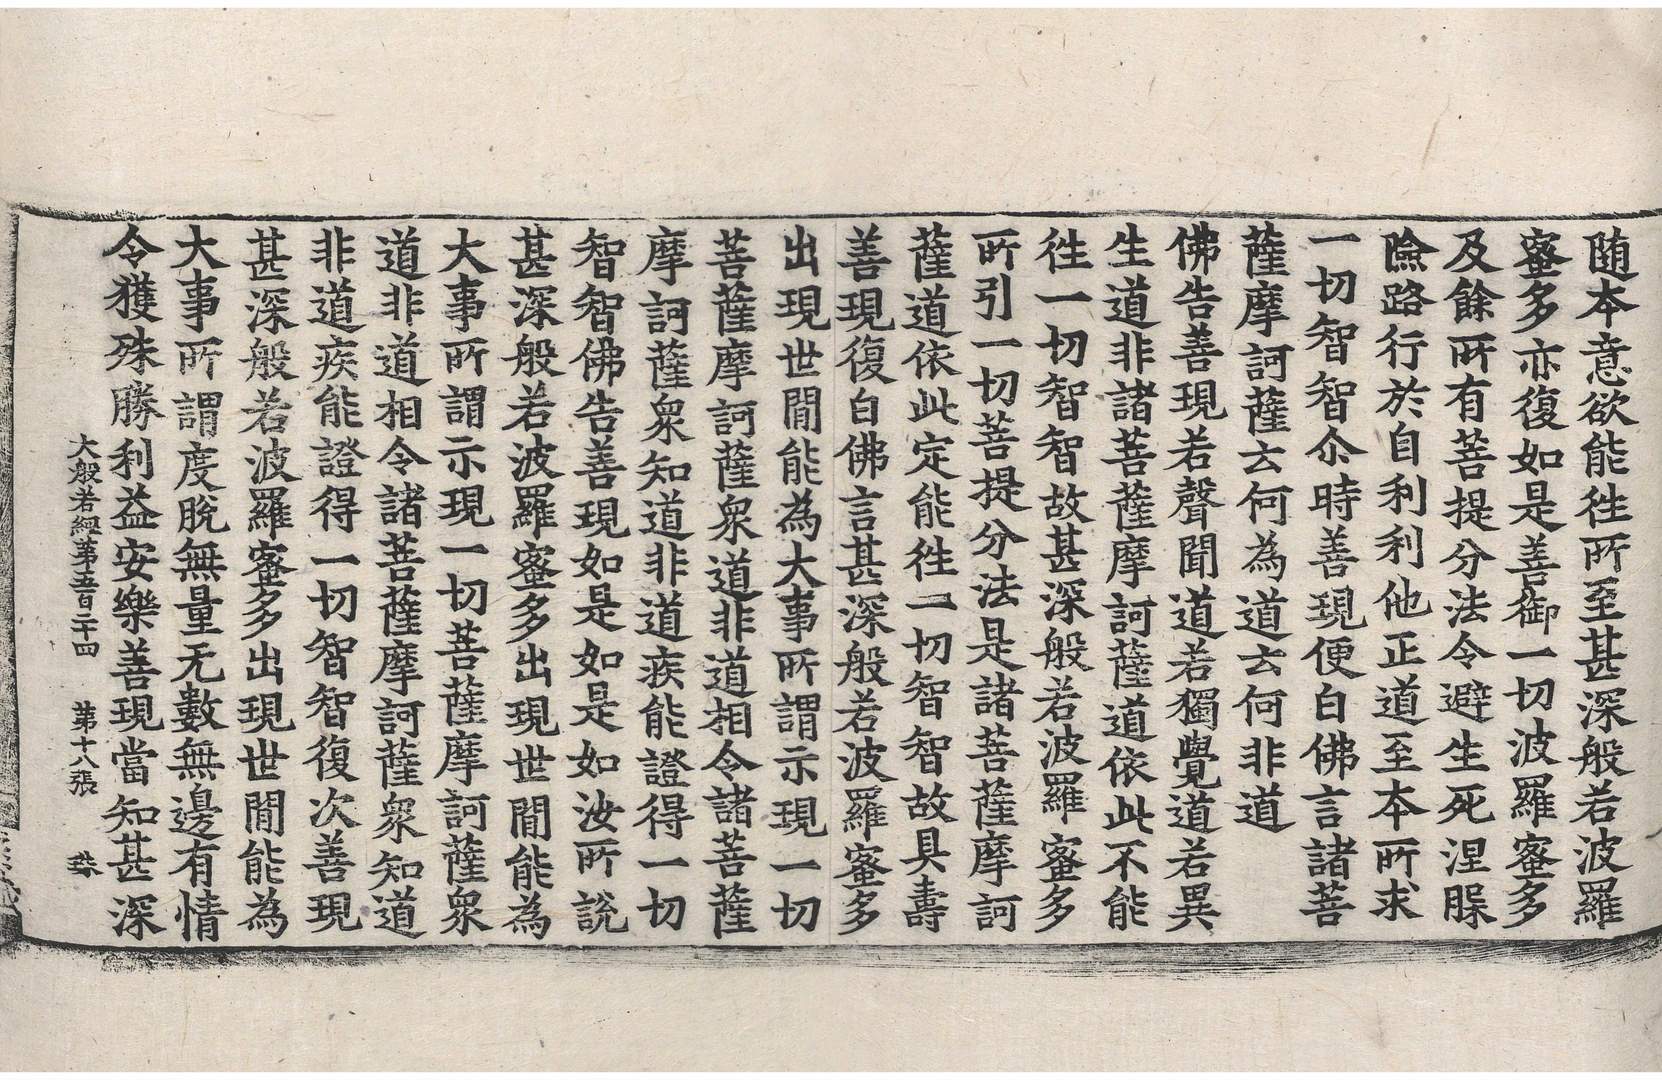 随本意欲能徃所至甚深般若波羅
蜜多亦復如是善御一切波羅蜜多
及餘所有菩提分法令避生死涅槃
險路行於自利利他正道至本所求
一切智智尒時善現便白佛言諸菩
薩摩訶薩云何為道云何非道
佛告善現若聲聞道若獨覺道若異
生道非諸菩薩摩訶薩道依此不能
徃一切智智故甚深般若波羅蜜多
所引一切菩提分法是諸菩薩摩訶
薩道依此定能徃一切智智故具壽
善現復白佛言甚深般若波羅蜜多
出現世間能為大事所謂示現一切
菩薩摩訶薩衆道非道相令諸菩薩
摩訶薩衆知道非道疾能證得一切
智智佛告善現如是如是如汝所說
甚深般若波羅蜜多出現世間能為
大事所謂示現一切菩薩摩訶薩衆
道非道相令諸菩薩摩訶薩衆知道
非道疾能證得一切智智復次善現
甚深般若波羅蜜多出現世間能為
大事所謂度脫無量无數無邊有情
令獲殊勝利益安樂善現當知甚深
大般若經第五百二十四 第十八張